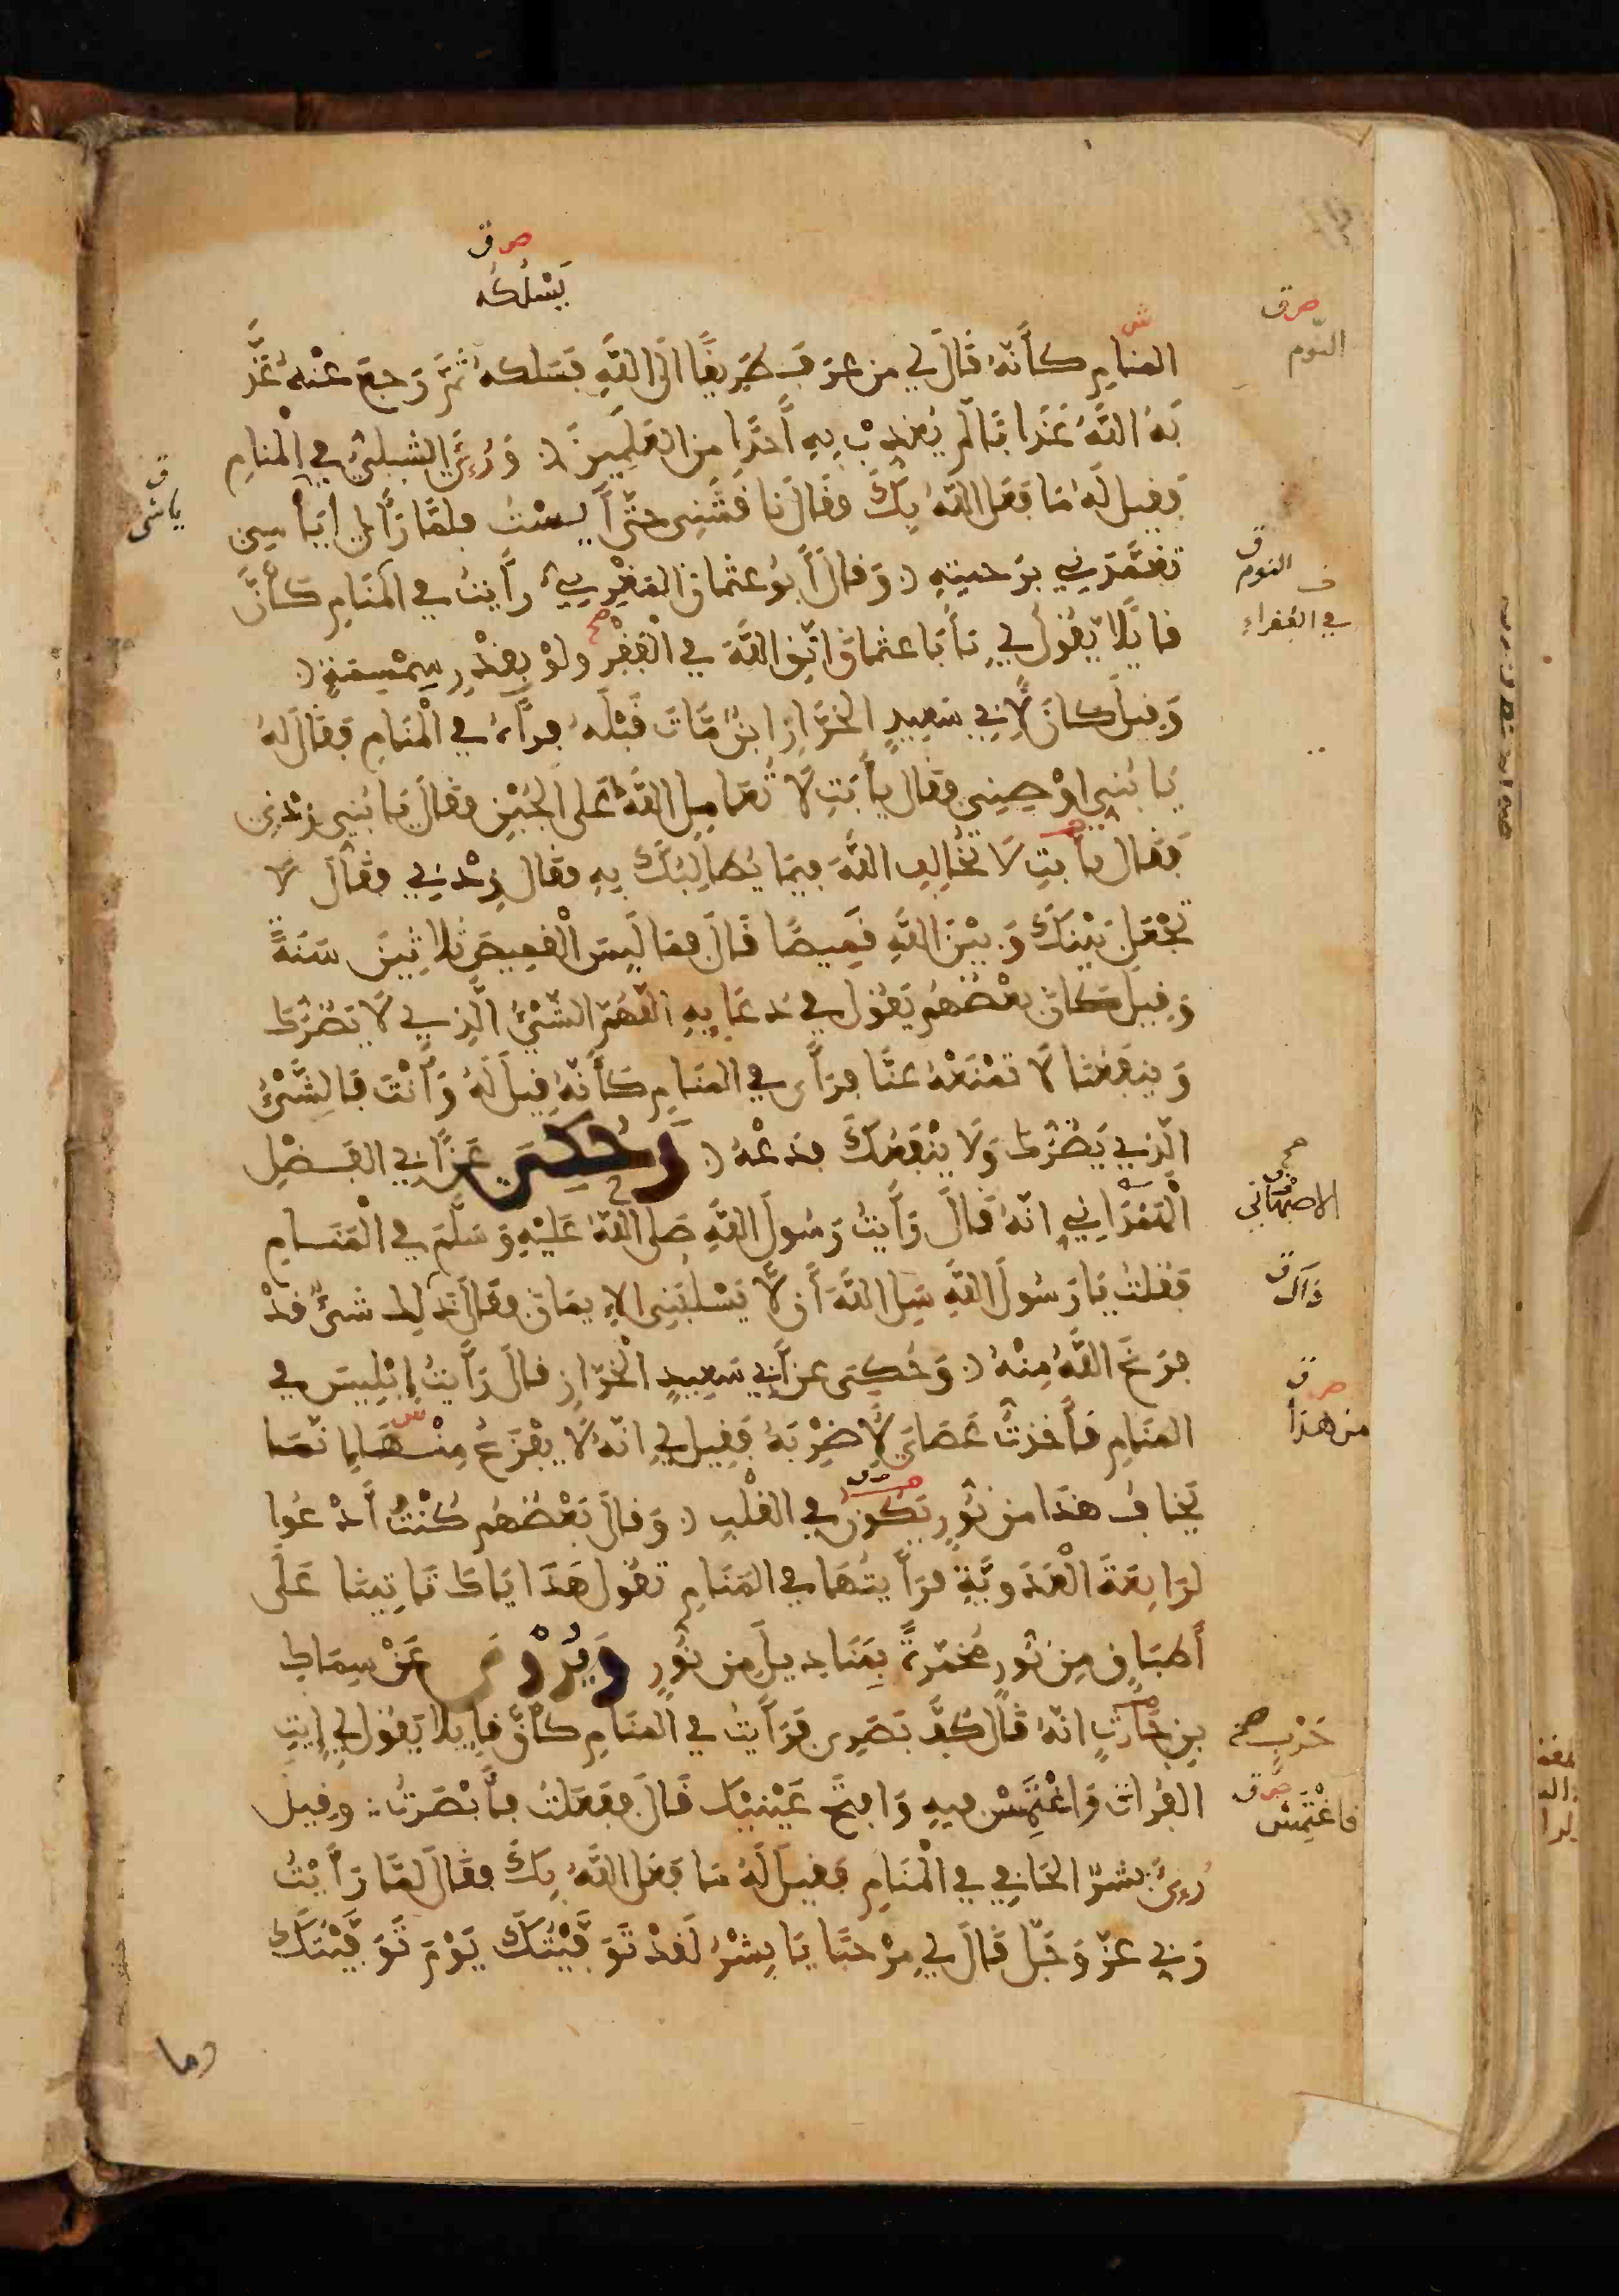 صر ق
يسلكه
المنام كأنه قال لي من عرف طريقا الى الله فسلكه ثم رجع عنه عذ
به الله عذابا لم يعذب به أحدا من العلمين وَرُءِيَ الشبلي في المنام
فقيل له ما فعل الله بك فقال ناقشني حتى أيست فلما رأى إيأسي
تغمدني برحمته وقال أبو عثمان المغربي رأيت في المنام كأن
قائلا يقول لي يأبا عثمان اتق الله في الفقر ولو بقدر سمسمة
وقيل كان لأبي سعيد الخراز ابن مات قبله فرآه في المنام فقال له
يا بني اوصيني فقال يأبت لا تعامل الله على الجبن فقال يا بني زدني
فقال يأبت لا تخالف الله فيما يطالبك به فقال زدني فقال لا
تجعل بينك وبين الله قميصا قال فما لبس القميص ثلاثين سنة
وقيل كان بعضهم يقول في دعايه اللهم الشيء الذي لا يضرك
وينفعنا لا تمنعه عنا فرأى في المنام كأنه قيل له وأنت فالشيء
الذي يضرك ولا ينفعك فدعه وحكي عن أبي الفضل
انه قال رأيت رسول الله صلى الله عليه وسلم في المنام
فقلت يا رسول الله سل الله أن لا يسلبني الإيمان فقال ذلك شيء قد
فرغ الله منه وحكى عن أبي سعيد الخراز قال رأيت إبليس في
المنام فأخذت عصاي لأضربه فقيل لي انه لا يفزع من هذا إنما
يخاف هذا من نور يكون في القلب وقال بعضهم كنت أدعوا
لرابعة العدوية فرأيتها في المنام تقول هداياك تاتينا على
أطباق من نور مخمرة بمناديل من نور ويروى عن سماك
بن حارث انه قال كف بصري فرأيت في المنام كأن قايلا يقول لي إيت
الفرات واغتمس فيه وافتح عينيك قال ففعلت فأبصرت وقيل
رُءِيَ بشر الحافي في المنام فقيل له ما فعل الله بك فقال لما رأيت
ربي عز وجل قال لي مرحبا يا بشر لقد توفيتك يوم توفيتك
وما
صر ق
النوم
ق
النوم
في الفقراء
الاصبهاني
ذاك ق
صر ق
من هذا
حرب صح
صر ق
فاغتمس
ق
ياسى